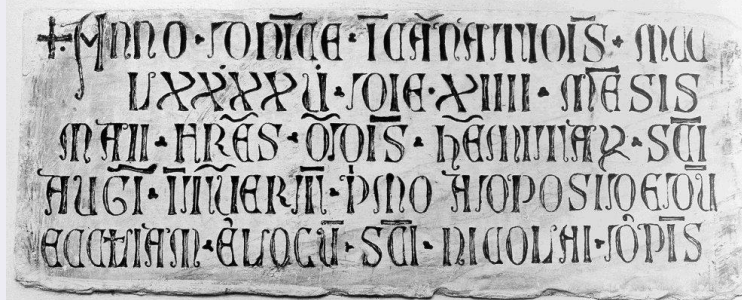 ✝ ANNO · DONĪCE · ĪCARNATIOĪS · MCC
LXXXXV · DIE · XIIII · MĒSIS
MAII · FRĒS · ŌDĪS · HĒMITAR · SCĪ
AUGĪ · PMO AD POSIDEDŪ
ECCLIAM · E LOCŪ · SCĪ · NICOLAI ·